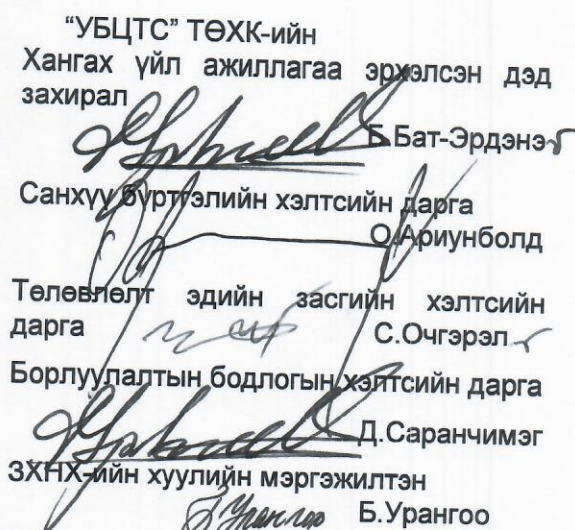 “УБЦТС” ТӨХК-ийн
Хангах үйл ажиллагаа эрхэлсэн дэд
захирал
Б.Бат-Эрдэнэ
Санхүү бүртгэлийн хэлтсийн дарга
О.Ариунболд
Төлөвлөлт эдийн засгийн хэлтсийн
дарга С.Очгэрэл
Борлуулалтын бодлогын хэлтсийн дарга
Д.Саранчимэг
ЗХНХ-ийн хуулийн мэргэжилтэн
Б.Урангоо